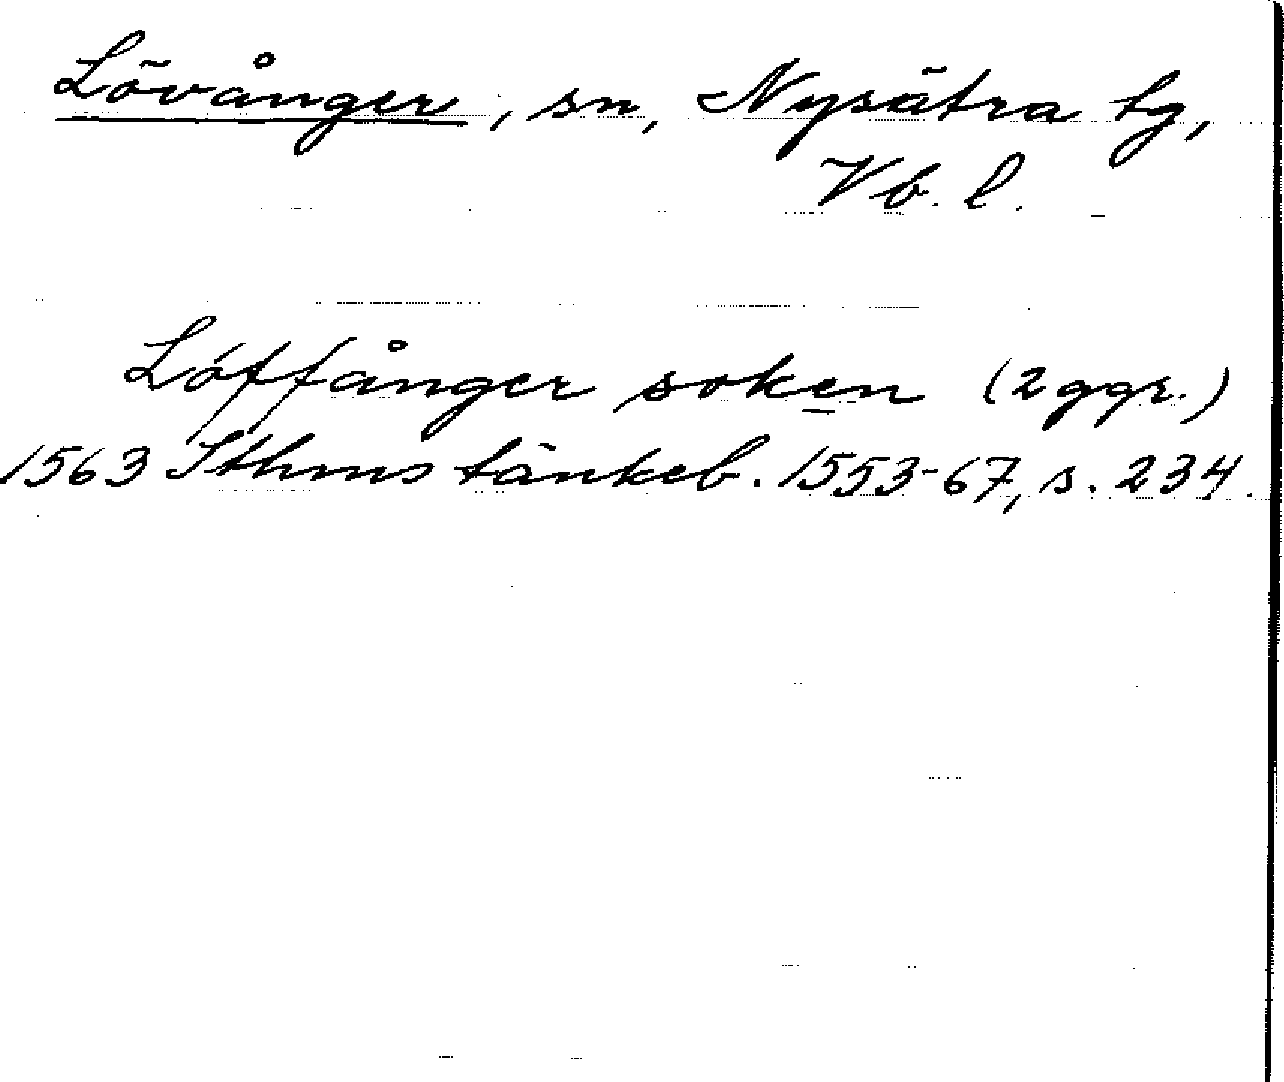 Lövånger, sn, Nysätra tg,
Vb. l.
Löffånger soken (2 ggr.)
1563 Sthms tänkeb. 1553-67, s. 234.